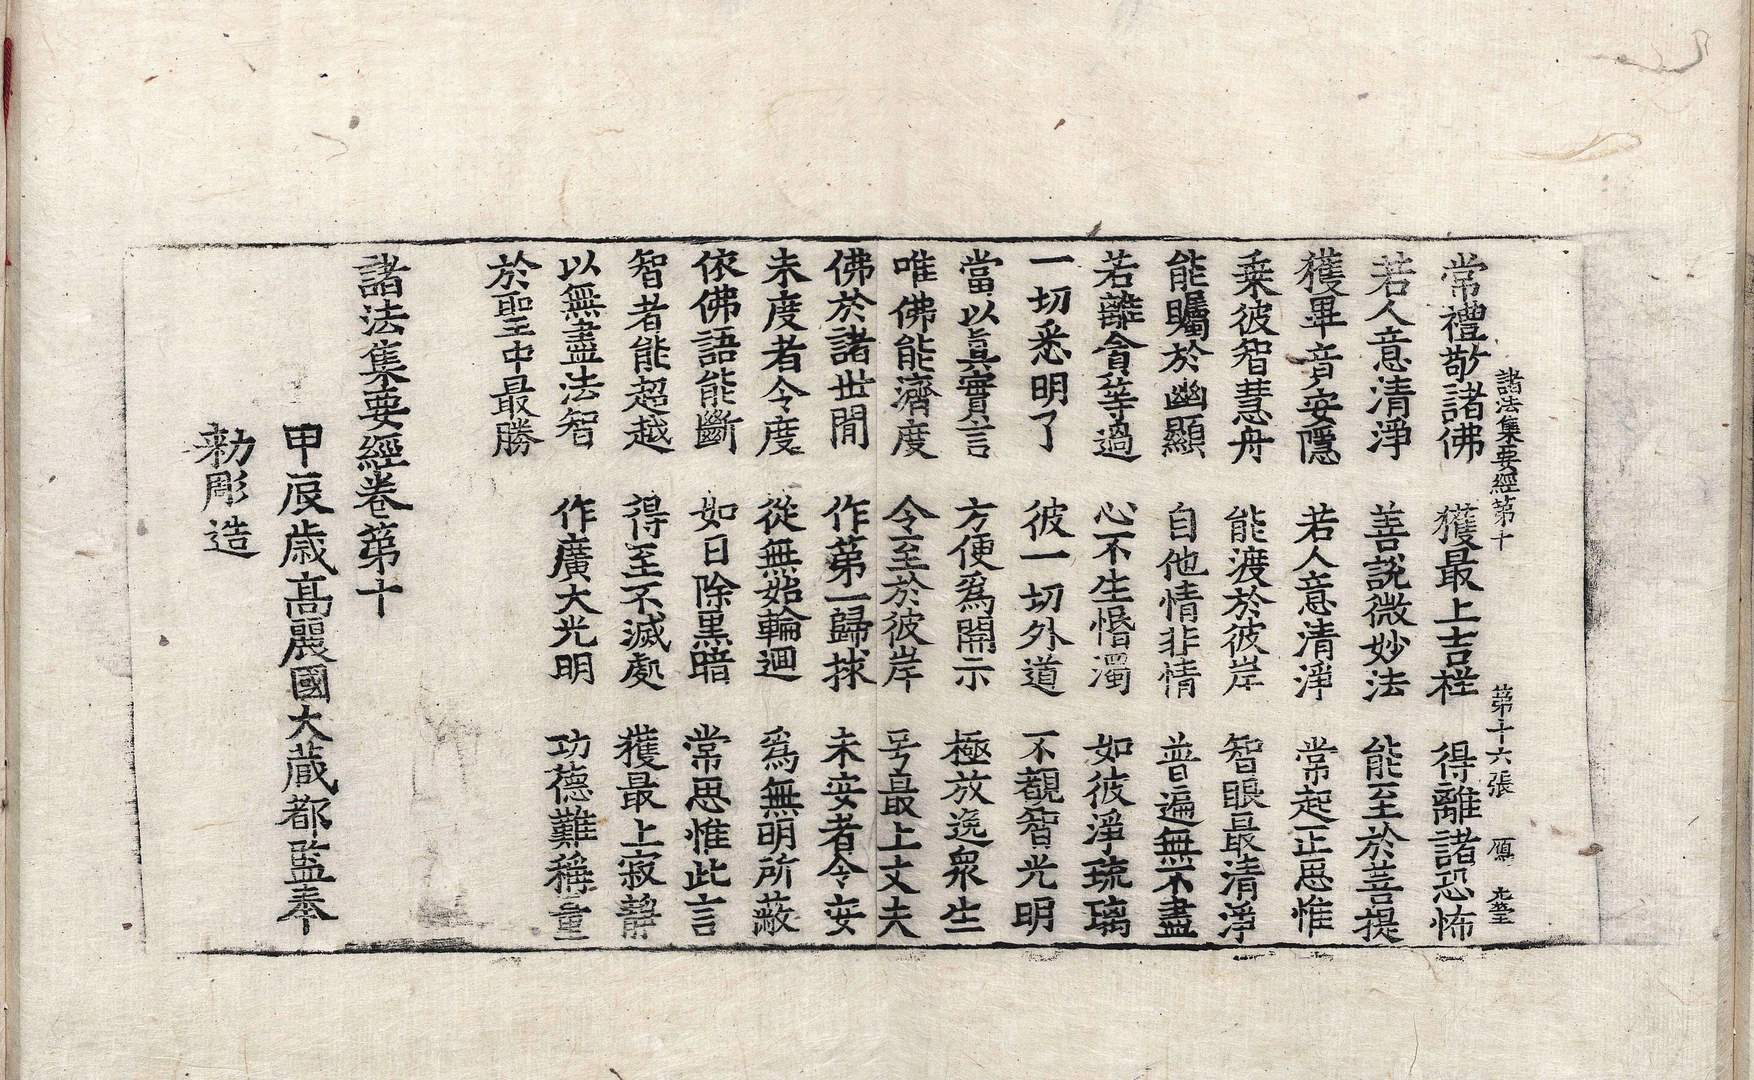 諸法集要經第十 第十六張 鴈
常禮敬諸佛 獲最上吉祥 得離諸恐怖
若人意清淨 善說微妙法 能至於菩提
獲畢音安隱 若人意清淨 常起正思惟
乗彼智慧舟 能渡於彼岸 智眼最清淨
能矚於幽顯 自他情非情 普遍無不盡
若離貪等過 心不生惛濁 如彼淨琉璃
一切悉明了 彼一切外道 不觀智光明
當以眞實言 方便爲開示 極放逸衆生
唯佛能濟度 令至於彼岸 号最上丈夫
佛於諸世閒 作第一歸救 未安者令安
未度者令度 從無始輪迴 爲無明所蔽
依佛語能斷 如日除黒暗 常思惟此言
智者能超越 得至不滅處 獲最上寂靜
以無盡法智 作廣大光明 功德難稱量
於聖中最勝
諸法集要經卷第十
甲辰歲高麗國大藏都監奉
勑彫造